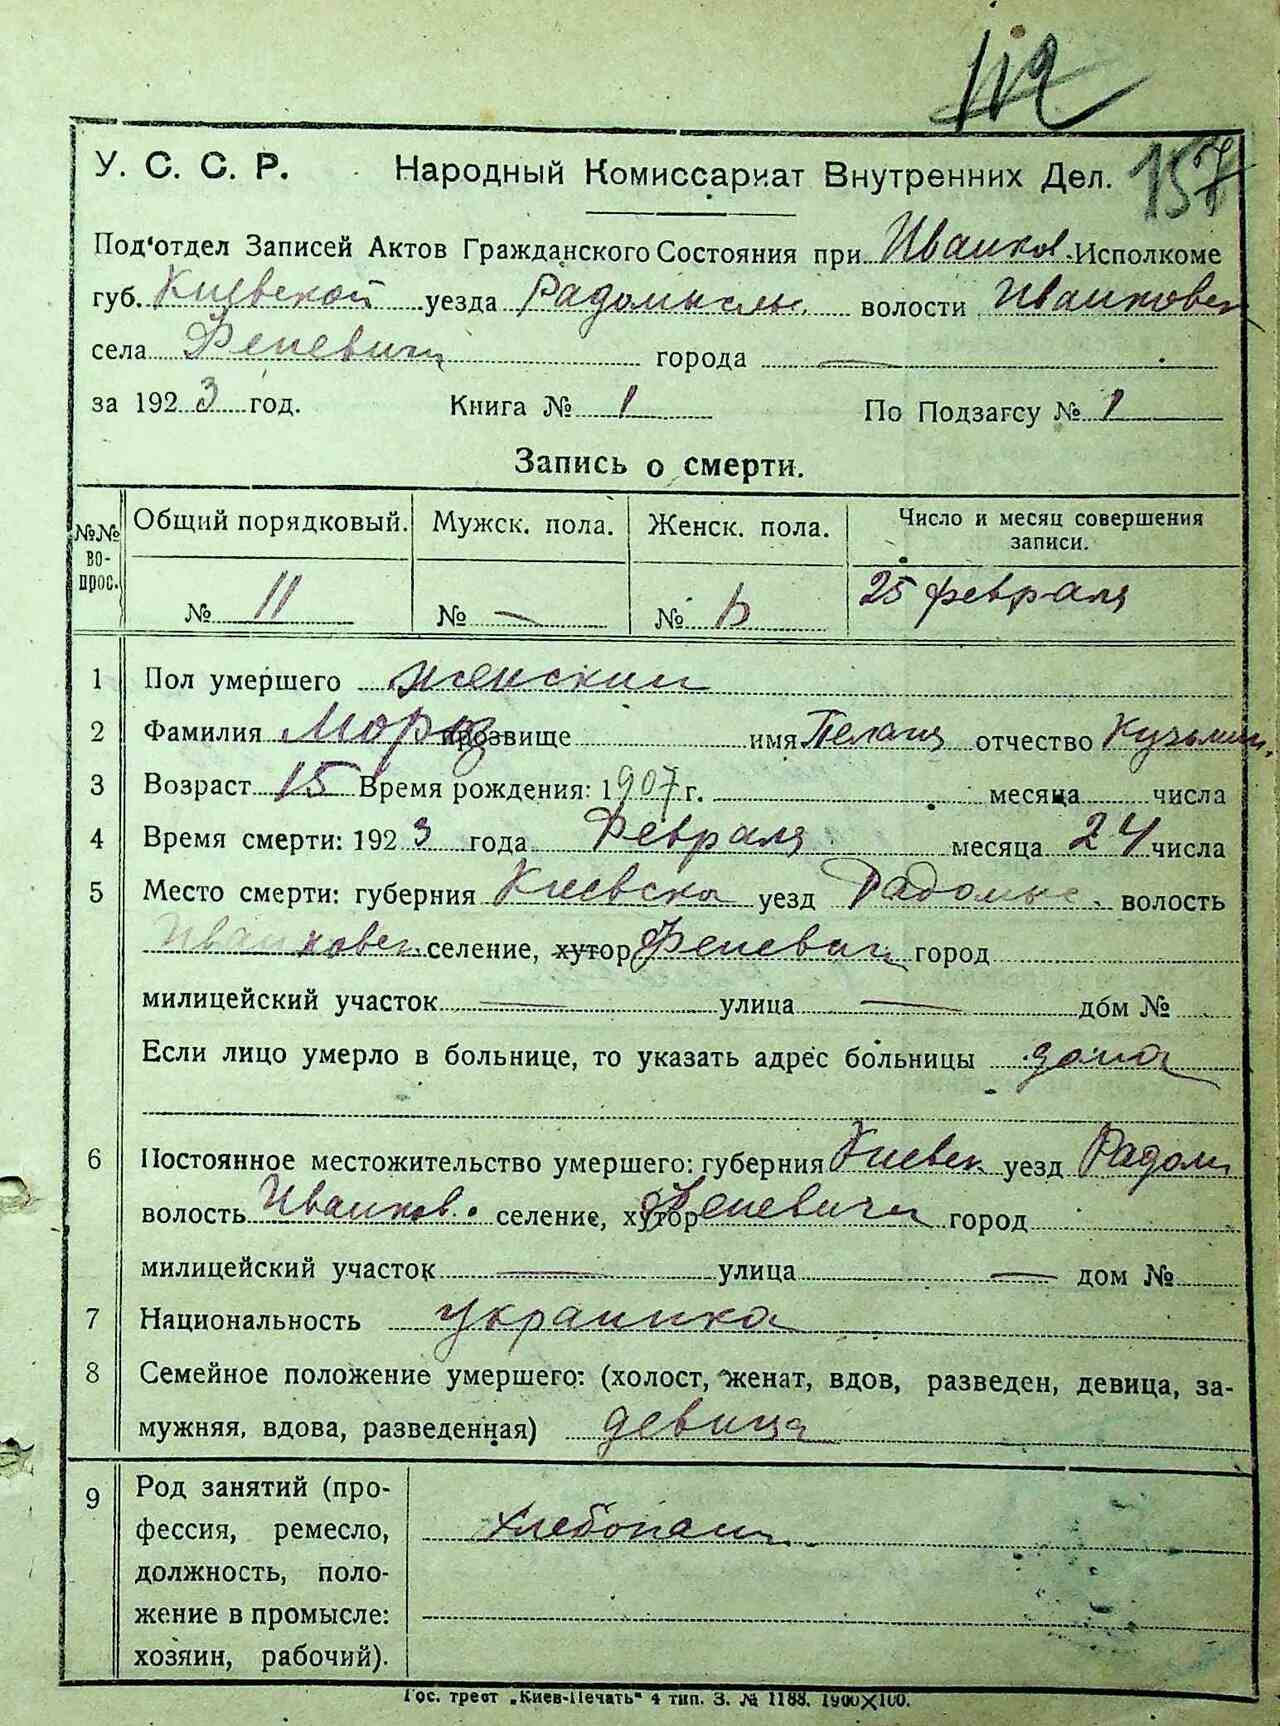 112
157
У. С. С. Р. Народный Комиссариат Внутренних Дел.
Под'отдел Записей Актов Гражданского Состояния при Иванков. Исполкоме
губ. Киевской уезда Радомысль. волости Иванковск
села Феневичи города —
за 1923 год. Книга № 1 По Подзагсу № 1
Запись о смерти.
№№ во- прос. Общий порядковый. Мужск. пола. Женск. пола. Число и месяц совершения записи.
№ 11 № — № 25 февраля
1 Пол умершего женский
2 Фамилия Мороз прозвище имя Пелагия отчество Кузьмин.
3 Возраст 15 Время рождения: 1907 г. месяца числа
4 Время смерти: 1923 года Февраля месяца 24 числа
5 Место смерти: губерния Киевска уезд Радомыс. волость
Иванковск. селение, хутор Феневичи город
милицейский участок — улица — дом №
Если лицо умерло в больнице, то указать адрес больницы дома
6 Постоянное местожительство умершего: губерния Киевск уезд Радом
волость Иванков. селение, хутор Феневичи город
милицейский участок — улица — дом №
7 Национальность украинка
8 Семейное положение умершего: (холост, женат, вдов, разведен, девица, за-
мужняя, вдова, разведенная) девица
9 Род занятий (про-
фессия, ремесло, хлебопаш
должность, поло-
жение в промысле:
хозяин, рабочий).
Гос. трест „Киев-Печать" 4 тип. З. № 1188. 1900X100.